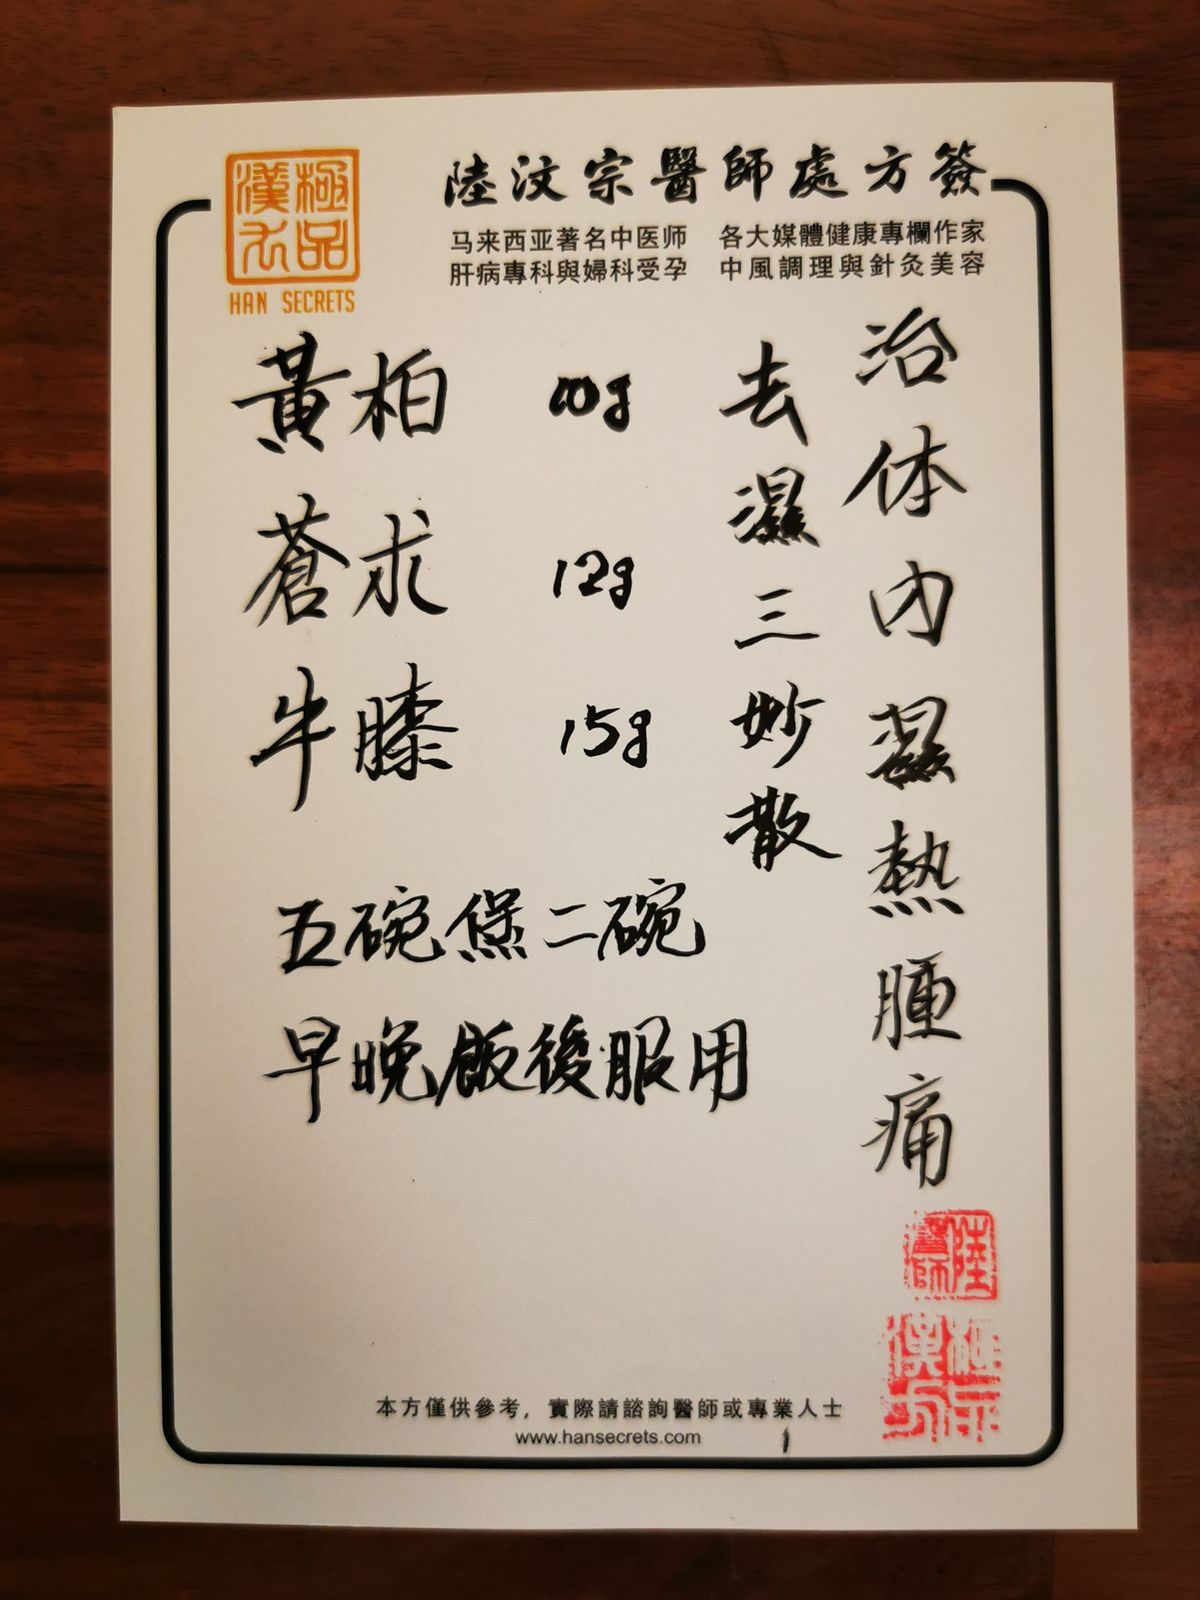 極品
漢方
HAN SECRETS
陸汶宗醫師處方簽
马来西亚著名中医师 各大媒體健康專欄作家
肝病專科與婦科受孕 中風調理與針灸美容
治体内濕熱腫痛
去濕三妙散
黃柏 10g
蒼术 12g
牛膝 15g
五碗煲二碗
早晚飯後服用
陸醫師
極品漢方
本方僅供參考，實際請諮詢醫師或專業人士
www.hansecrets.com